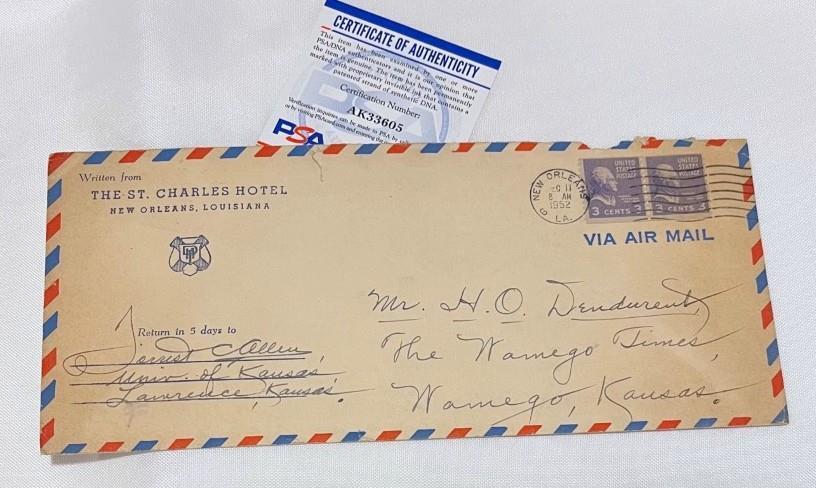 CERTIFICATE OF AUTHENTICITY
This item has been examined by one or more
PSA/DNA authenticators and it is our opinion that
the item is genuine. The item has been permanently
marked with proprietary invisible ink that contains a
patented strand of synthetic DNA.
Certification Number:
AK33605
Verification inquiries can be made to PSA by
or by visiting PSAcard.com and entering the
PSA
Written from
THE ST. CHARLES HOTEL
NEW ORLEANS, LOUISIANA
NEW ORLEANS
11
8 AM
1952
LA.
UNITED
STATES
POSTAGE
3 CENTS 3
UNITED
STATES
POSTAGE
3 CENTS 3
VIA AIR MAIL
Return in 5 days to
Forrest C Allen,
Univ. of Kansas,
Lawrence, Kansas.
Mr. H. O. Dendurent,
The Wamego Times,
Wamego, Kansas.